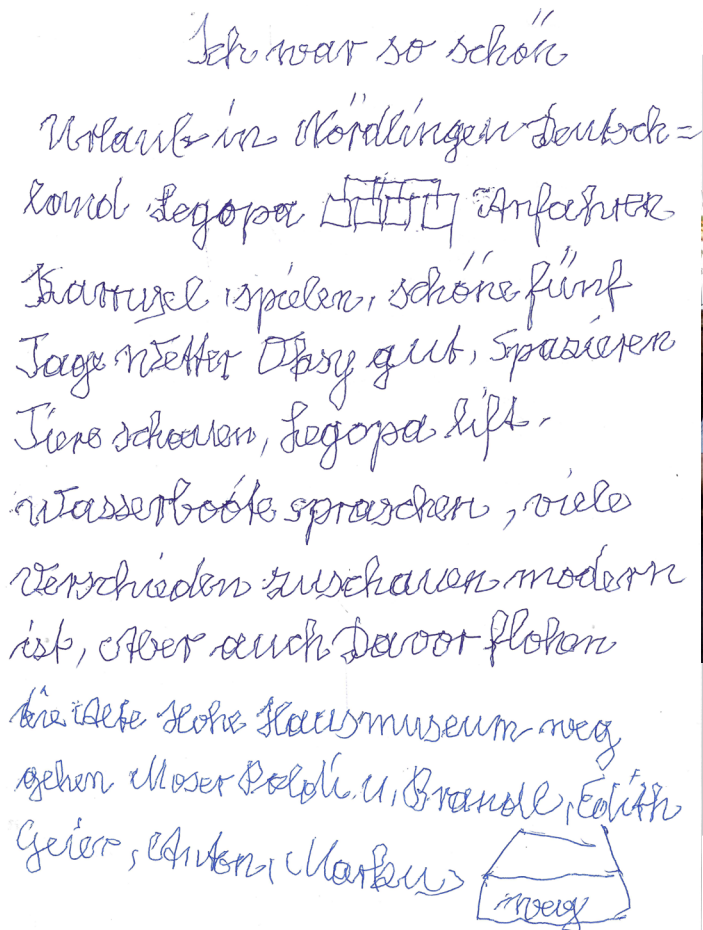 Ich war so schön
Urlaub in Nördlingen Deutsch=
land Legopa Anfahren
Karrusel spielen, schöne fünf
Tage Wetter gut, Spazieren
Tiere schauen, Legopa lift.
Wasserboote spraschen, viele
Verschieden zuschauen modern
ist, Aber auch Davor flohen
die Alte Hohe Hausmuseum weg
gehen Moser Poldi u, Brandl, Edith
Geier, Anton, Markus
weg